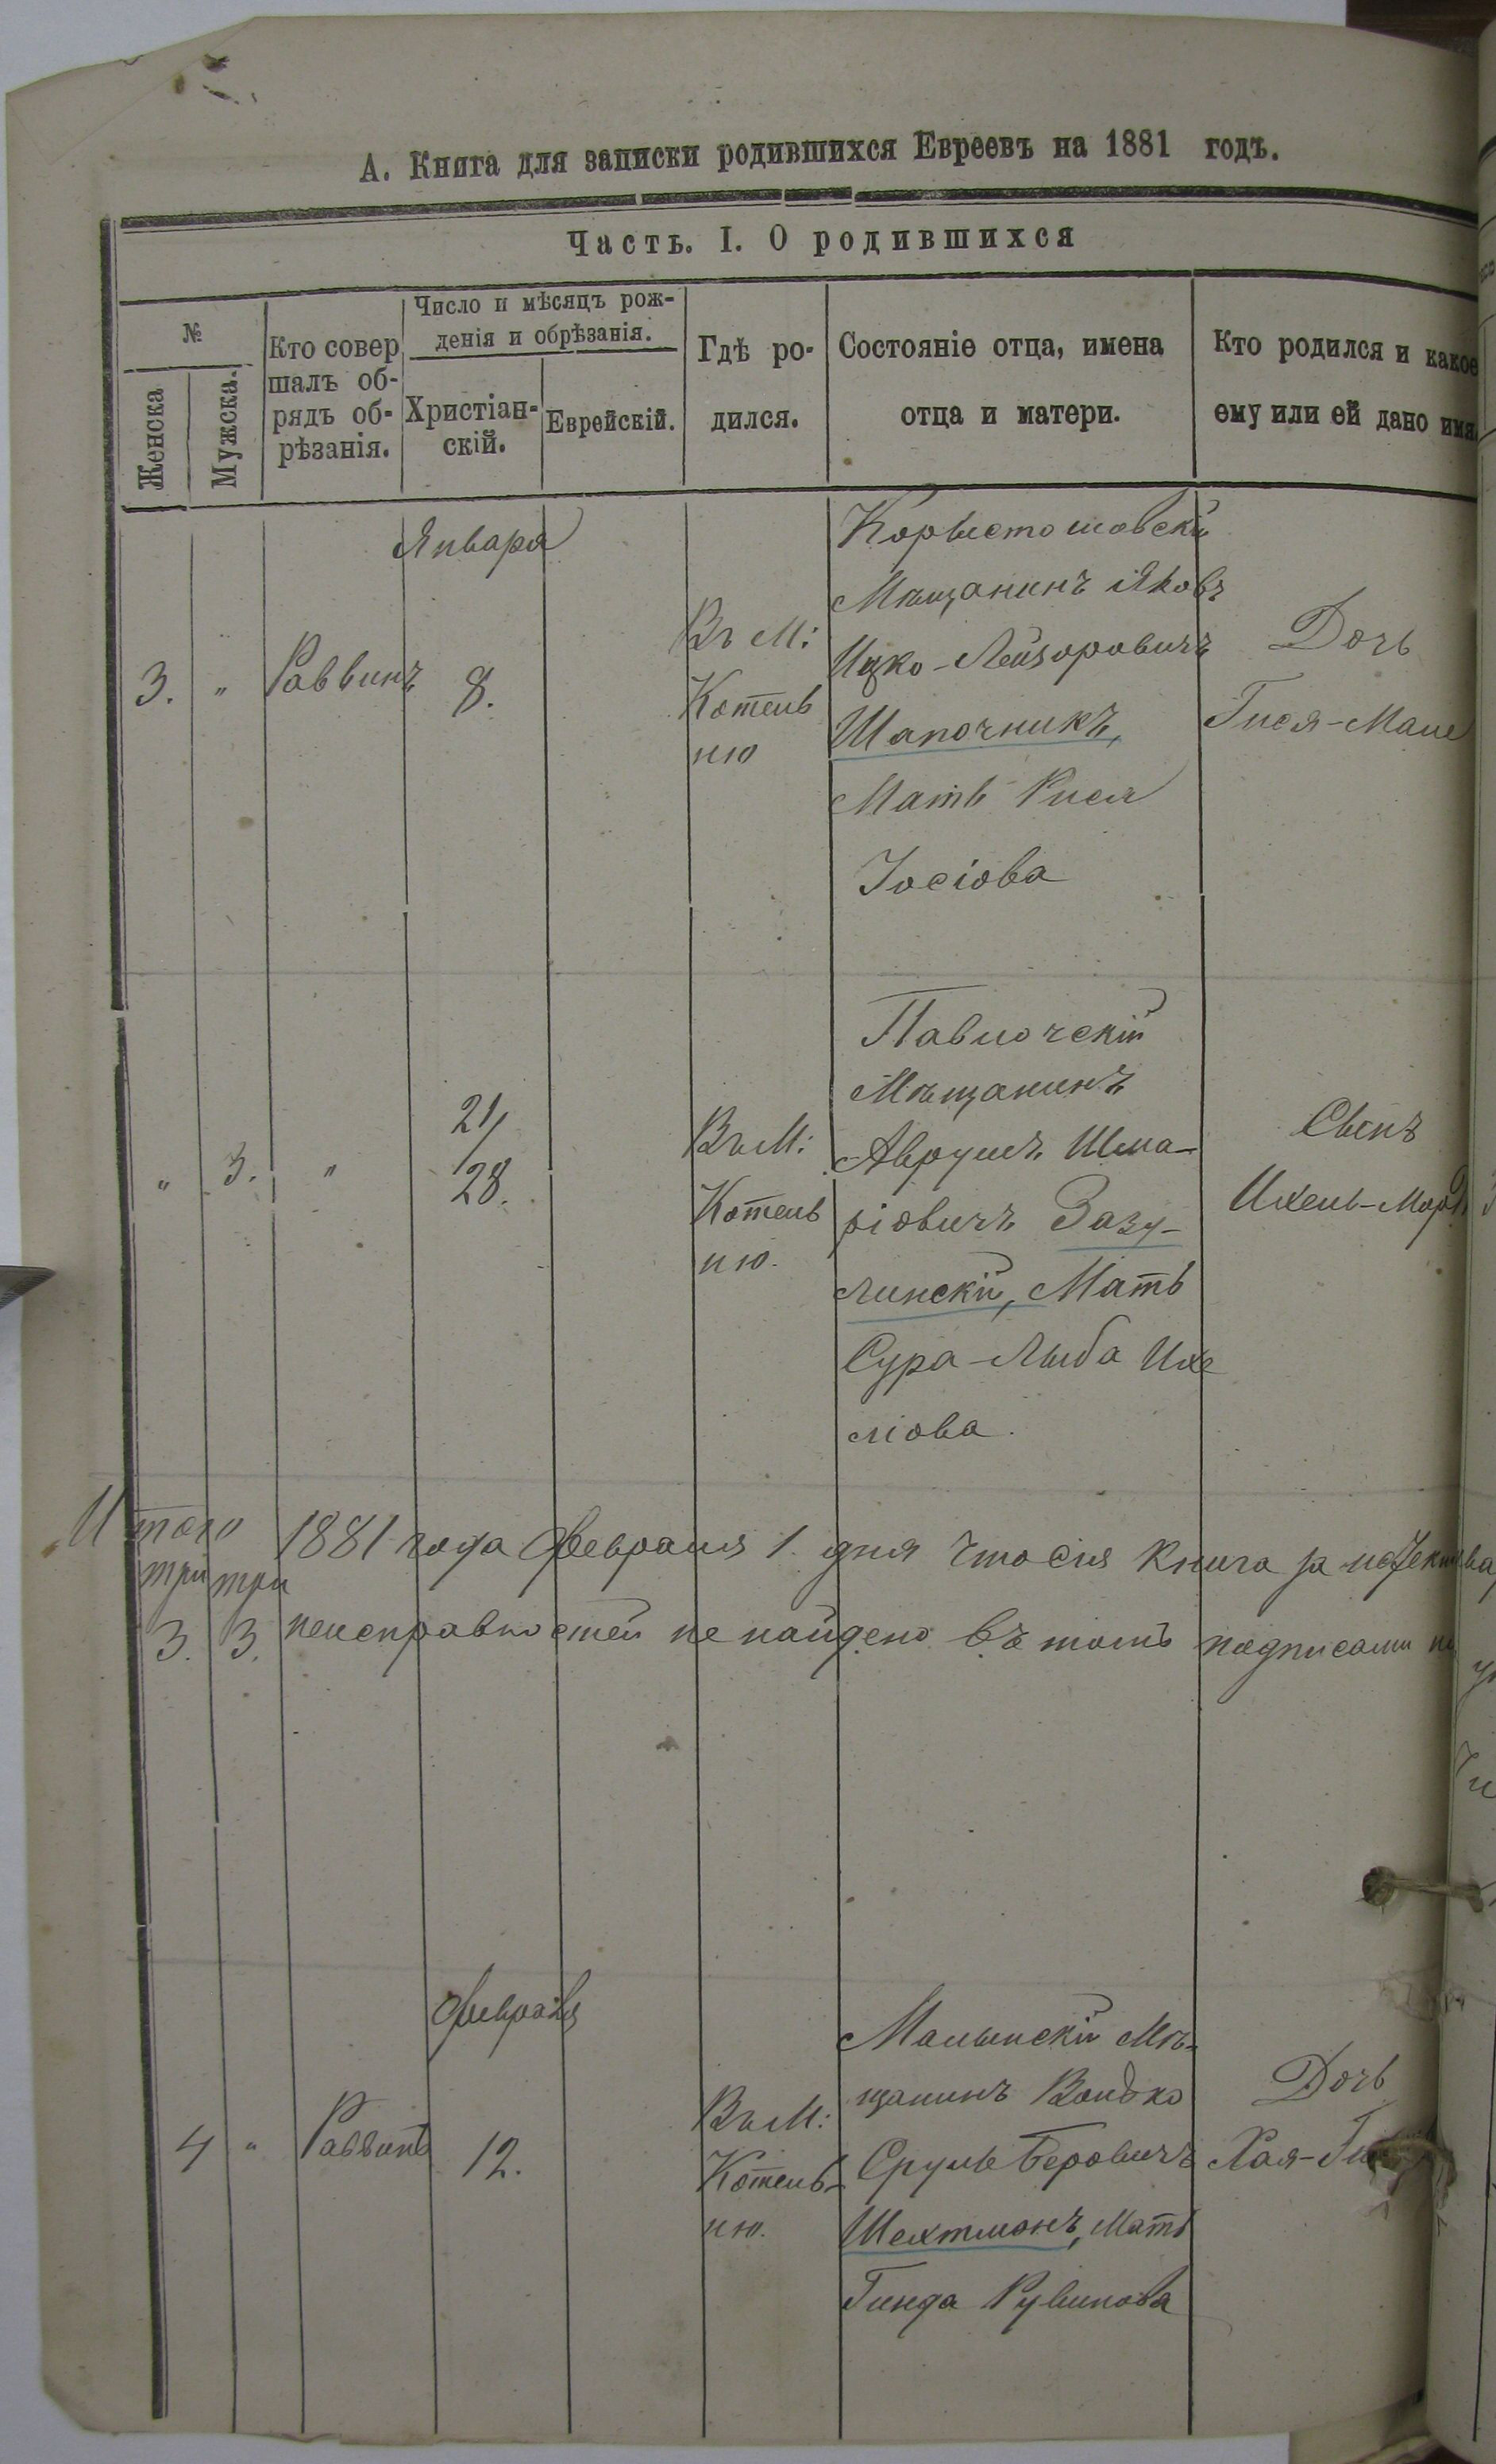 А. Книга для записки родившихся Евреевъ на 1881 годъ.
Часть. I. О родившихся
№
Женска
Мужска.
Кто совер
шалъ об-
рядъ об-
рѣзанія.
Число и мѣсяцъ рож-
денія и обрѣзанія.
Христіан-
скій.
Еврейскій.
Гдѣ ро-
дился.
Состояніе отца, имена
отца и матери.
Кто родился и какое
ему или ей дано имя.
Января
3.
"
Раввинъ
8.
Въ М:
Котель
ню
Корыстошовскій
Мѣщанинъ Яковъ
Ицко-Лейзоровичъ
Шапочникъ,
Мать Рися
Іосіова
Дочь
Гися-Мале
"
3.
"
21/
28.
Въ М:
Котель
ню.
Паволочскій
Мѣщанинъ
Аврумъ Шма-
ріовичъ Зазу-
линскій, Мать
Сура-Лыба Ихе
ліова.
Сынъ
Ихель-Морд
Итого
три три
3. 3.
1881 года Февраля 1. дня что сія книга за
неисправностей не найдено въ томъ подписали
Февраля
4
"
Раввинъ
12.
Въ М:
Котель-
ню.
Малынскій Мѣ-
щанинъ Волько
Сруль Беровичъ
Шехтманъ, Мать
Гинда Рувинова
Дочь
Хая-